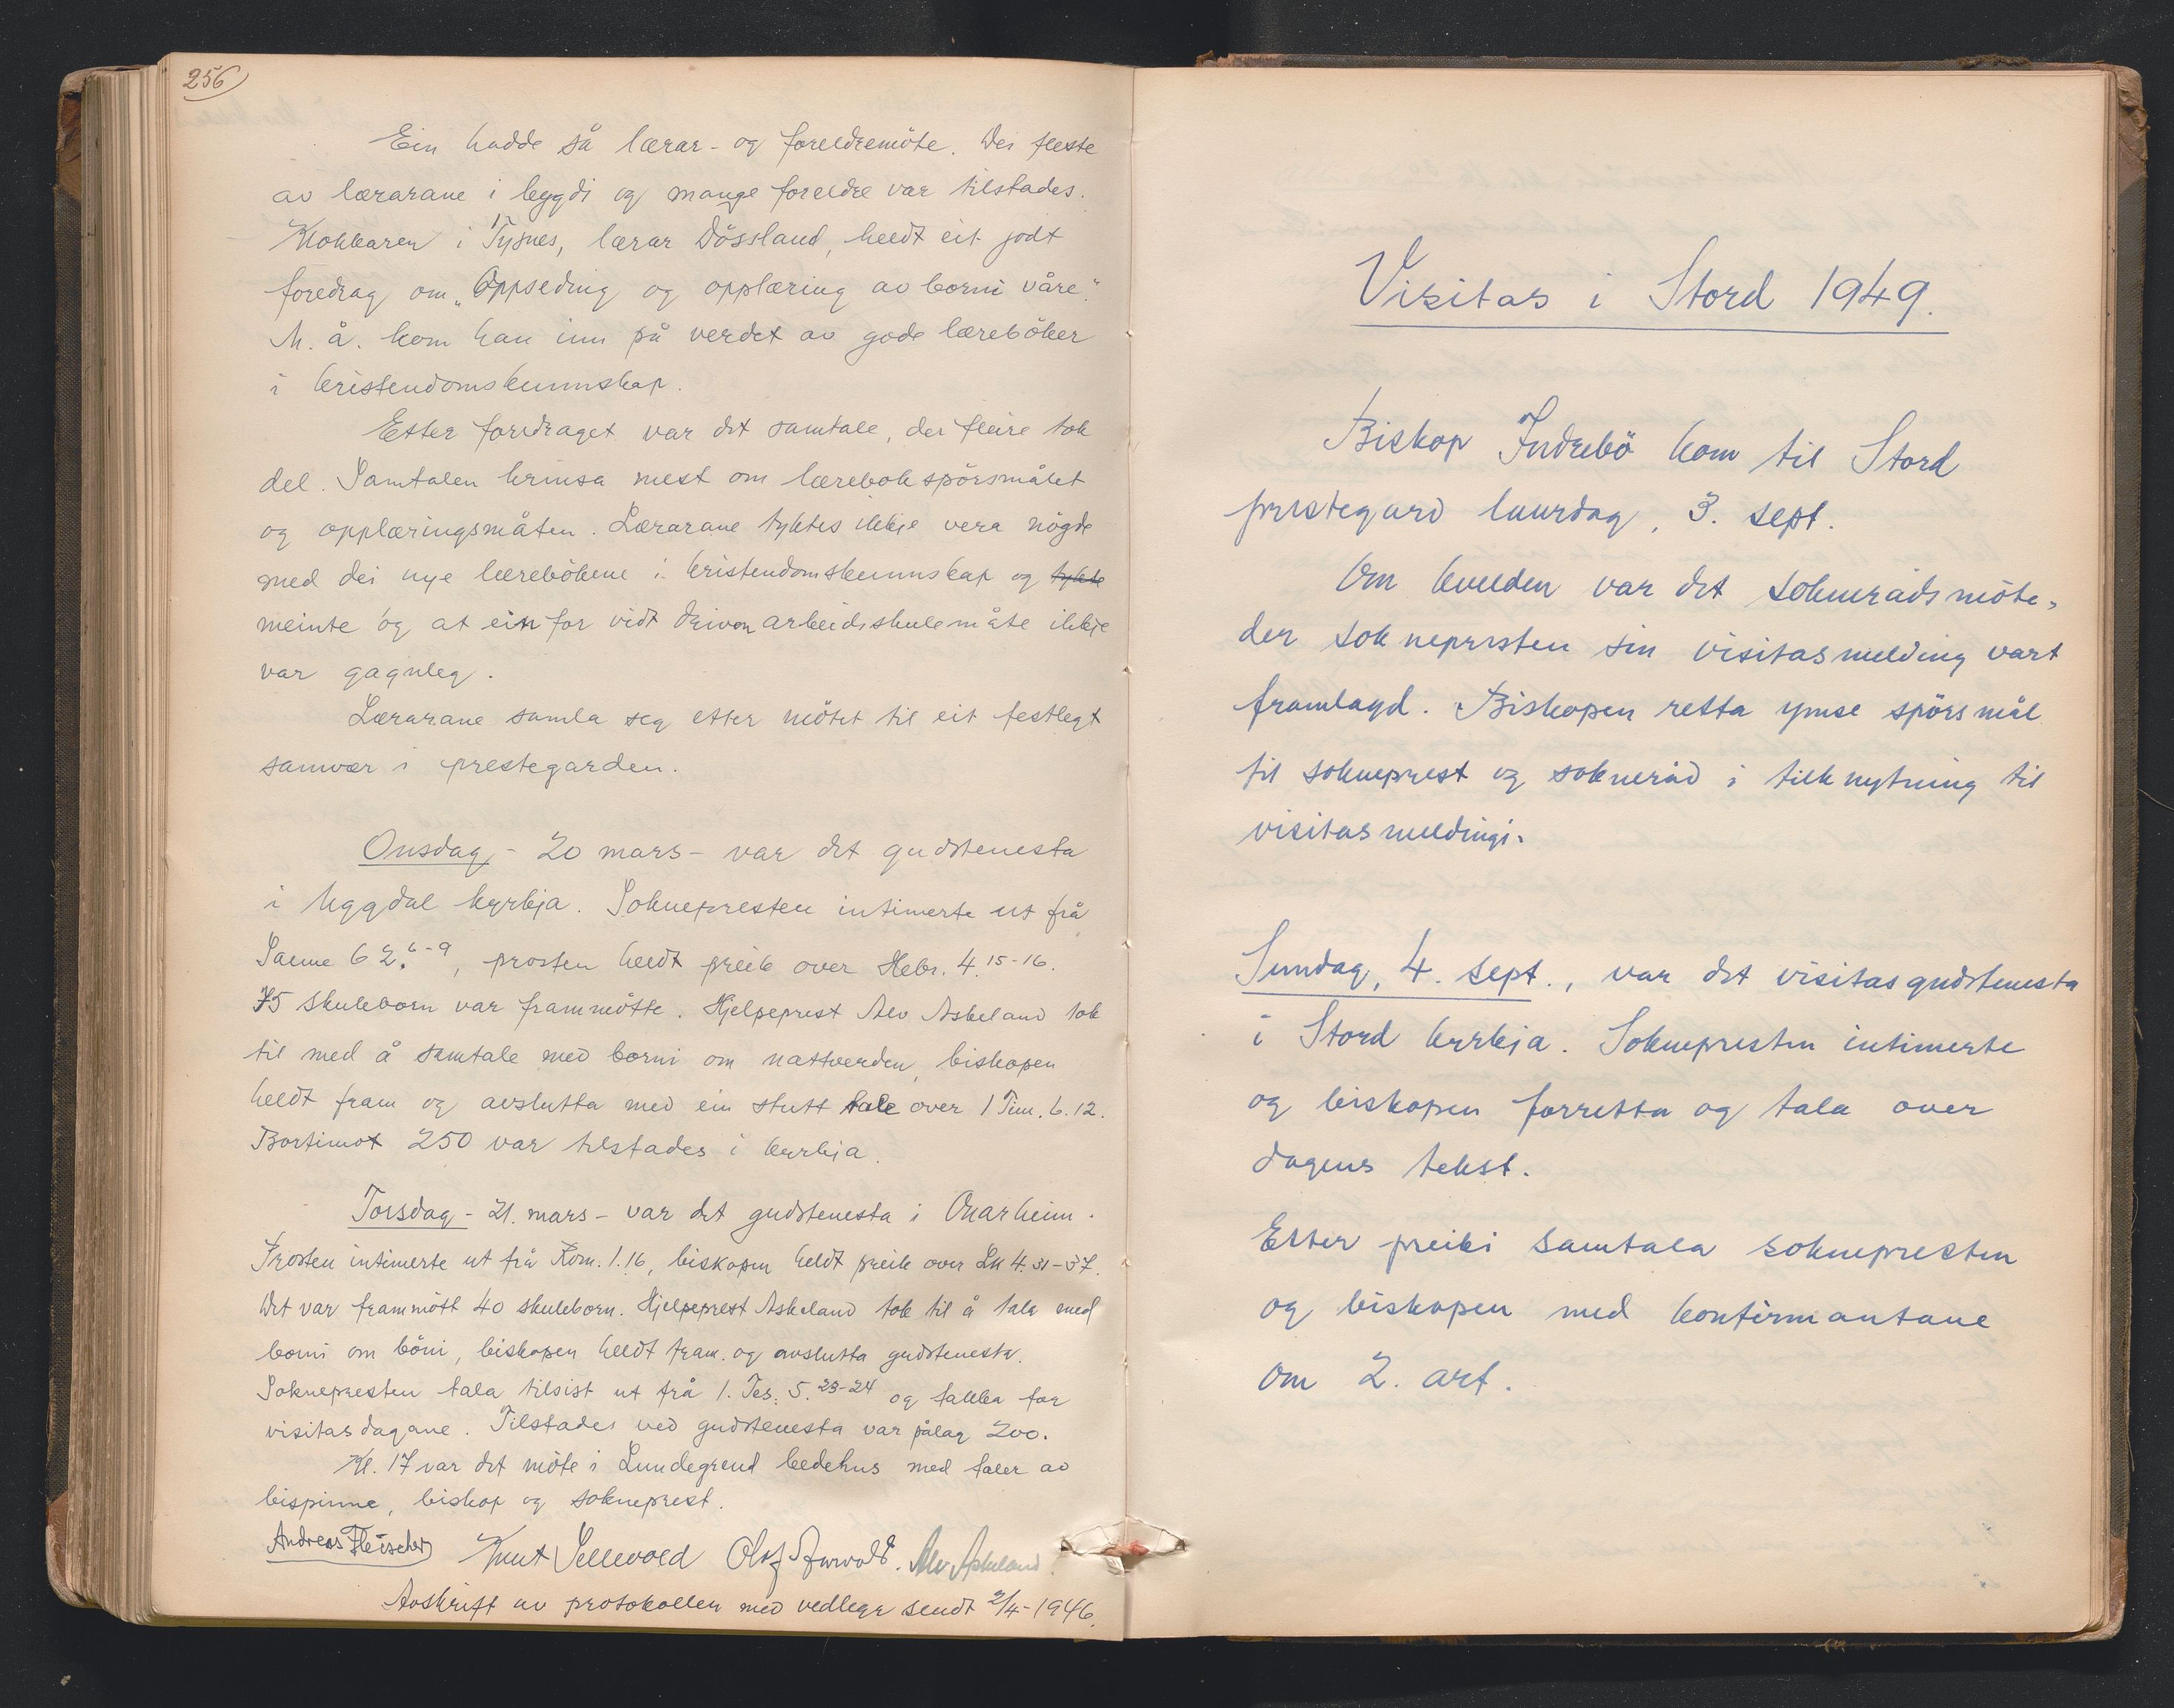 256
Ein hadde så lærar- og foreldremöte. Dei fleste
av lærarane i bygdi og mange foreldre var tilstades.
Klokkaren i Tysnes, lærar Dössland, heldt eit godt
foredrag om „Oppseding og opplæring av borni våre."
M. a. kom han inn på verdet av gode læreböker
i kristendomskunnskap.
Etter foredraget var det samtale, der fleire tok
del. Samtalen krinsa mest om lærebokspörsmålet
og opplæringsmåten. Lærarane tyktes ikkje vera nögde
med dei nye lærebökene i kristendomskunnskap og tykte
meinte óg at ein for vidt driven arbeidsskulemåte ikkje
var gagnleg.
Lærarane samla seg etter mötet til eit festlegt
samvær i prestegarden.
Onsdag - 20 mars - var det gudstenesta
i Uggdal kyrkja. Soknepresten intimerte ut frå
Salme 62. 6-9, prosten heldt preik over Hebr. 4. 15-16.
75 skuleborn var frammötte. Hjelpeprest Alv Askeland tok
til med å samtale med borni om nattverden, biskopen
heldt fram og avslutta med ein stutt tale over 1 Tim. 6. 12.
Bortimot 250 var tilstades i kyrkja.
Torsdag - 21. mars - var det gudstenesta i Onarheim.
Prosten intimerte ut frå Rom. 1. 16, biskopen heldt preik over Lk 4. 31-37.
Det var frammött 40 skuleborn. Hjelpeprest Askeland tok til å tala med
borni om böni, biskopen heldt fram og avslutta gudstenesta.
Soknepresten tala tilsist ut frå 1. Tes. 5. 23-24 og takka for
visitasdagane. Tilstades ved gudstenesta var pålag 200.
Kl. 17 var det möte i Lundegrend bedehus med taler av
bispinne, biskop og sokneprest.
Andreas Fleischer Knut Sellevold Olaf Alv Askeland.
Avskrift av protokollen med vedlegg sendt 2/4-1946.
Visitas i Stord 1949.
Biskop Indrebö kom til Stord
prestegard laurdag, 3. sept.
Om kvelden var det soknerådsmöte,
der soknepresten sin visitasmelding vart
framlagd. Biskopen retta ymse spörsmål
til sokneprest og sokneråd i tilknytning til
visitasmeldingi.
Sundag, 4. sept., var det visitasgudstenesta
i Stord kyrkja. Soknepresten intimerte
og biskopen forretta og tala over
dagens tekst.
Etter preiki samtala soknepresten
og biskopen med konfirmantane
om 2. art.